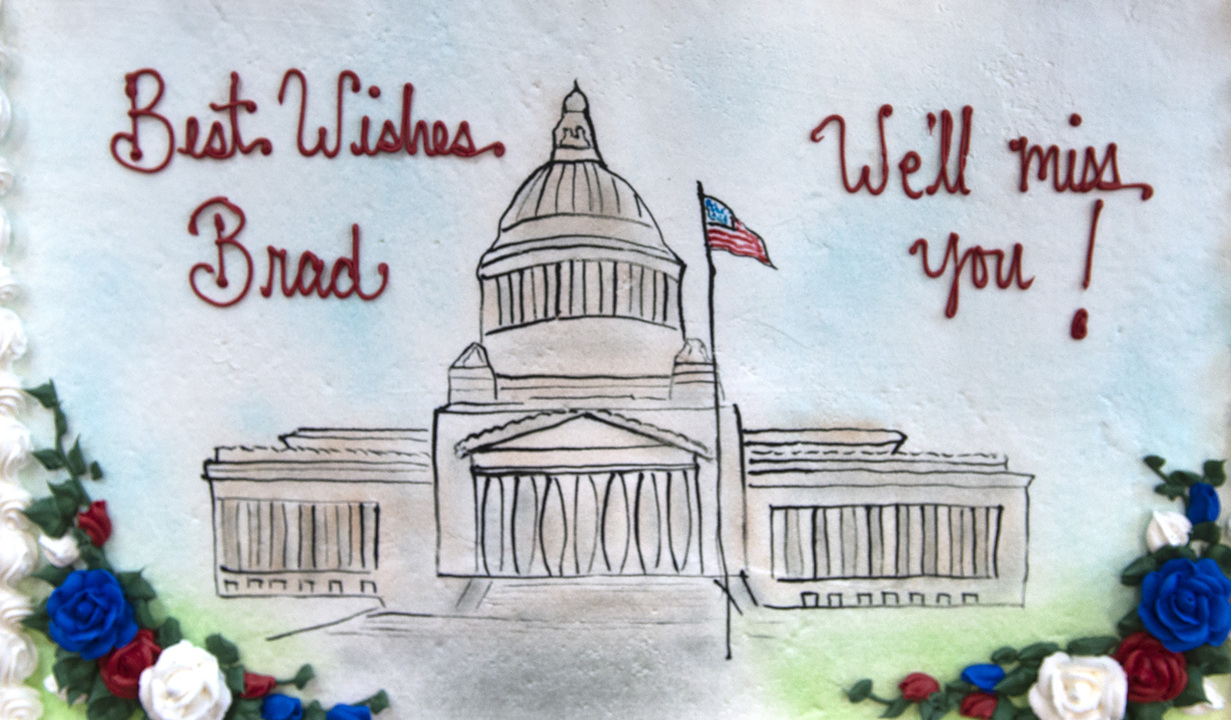 Best Wishes
Brad
We'll miss
you!